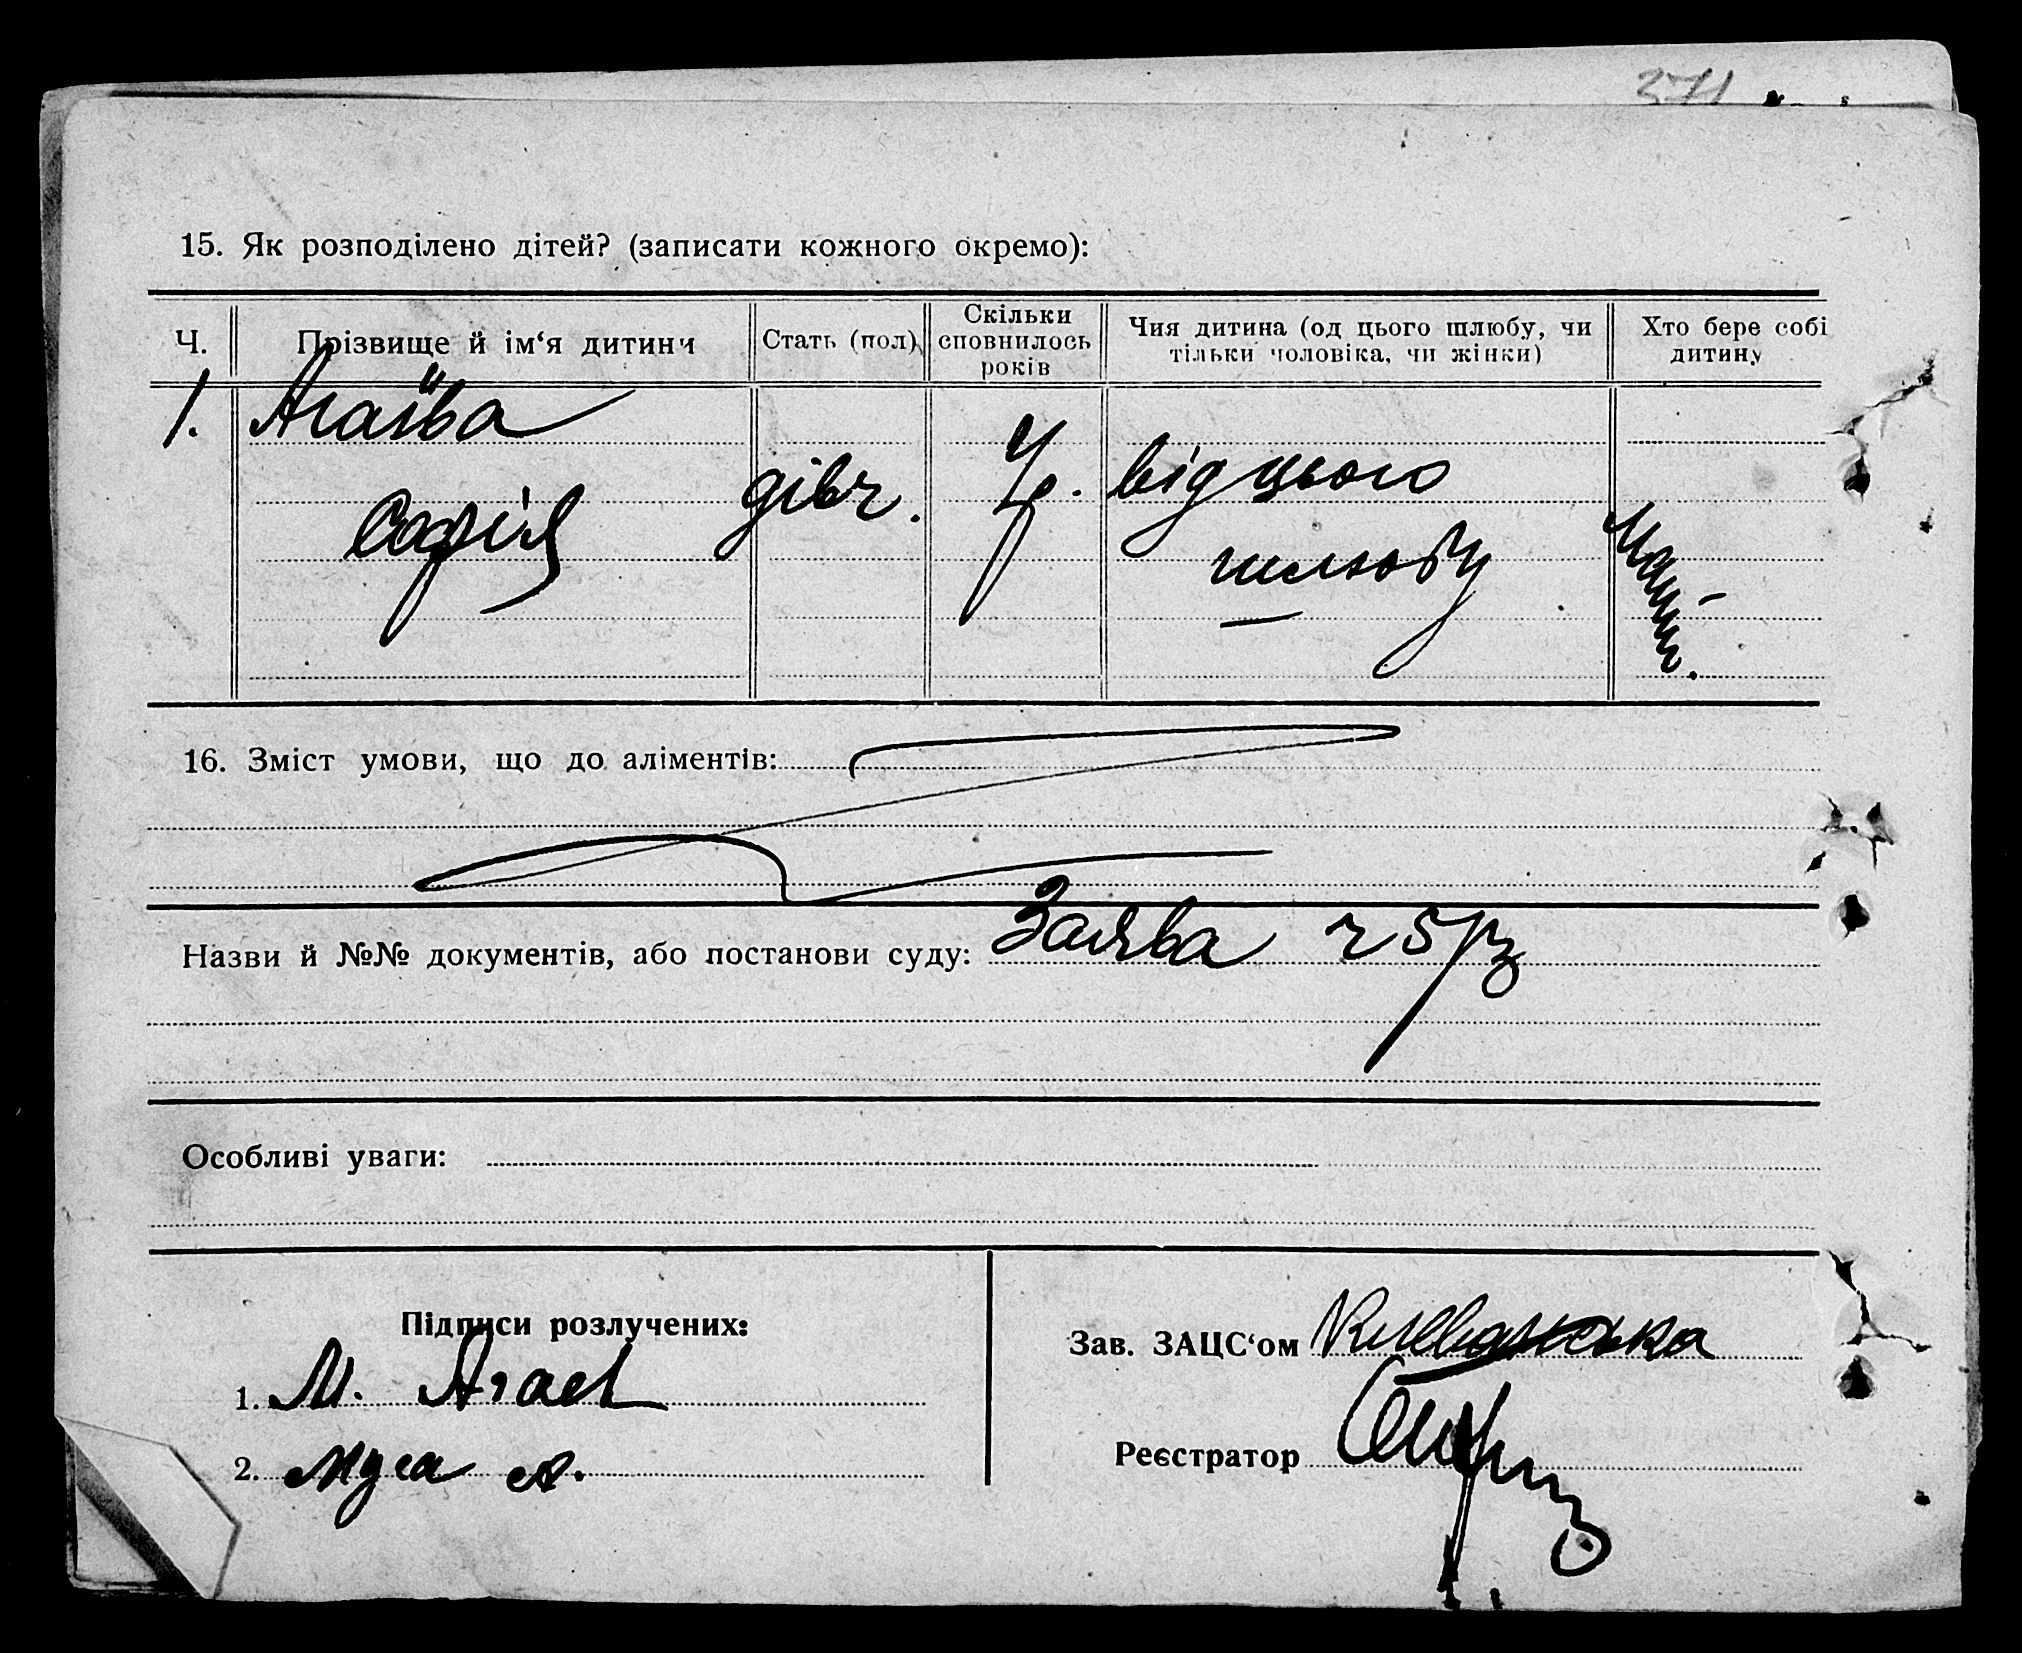 371
15. Як розподілено дітей? (записати кожного окремо):
Ч. Прізвище й ім‘я дитини Стать (пол) Скільки сповнилось років Чия дитина (од цього шлюбу, чи тільки чоловіка, чи жінки) Хто бере собі дитину
1. Агаїва
Софія дівч. від цього
шлюбу
16. Зміст умови, що до аліментів:
Назви й №№ документів, або постанови суду: Заява ч 5/3
Особливі уваги:
Підписи розлучених:
1. М. Агаев
2. Муса А.
Зав. ЗАЦС‘ом
Реєстратор